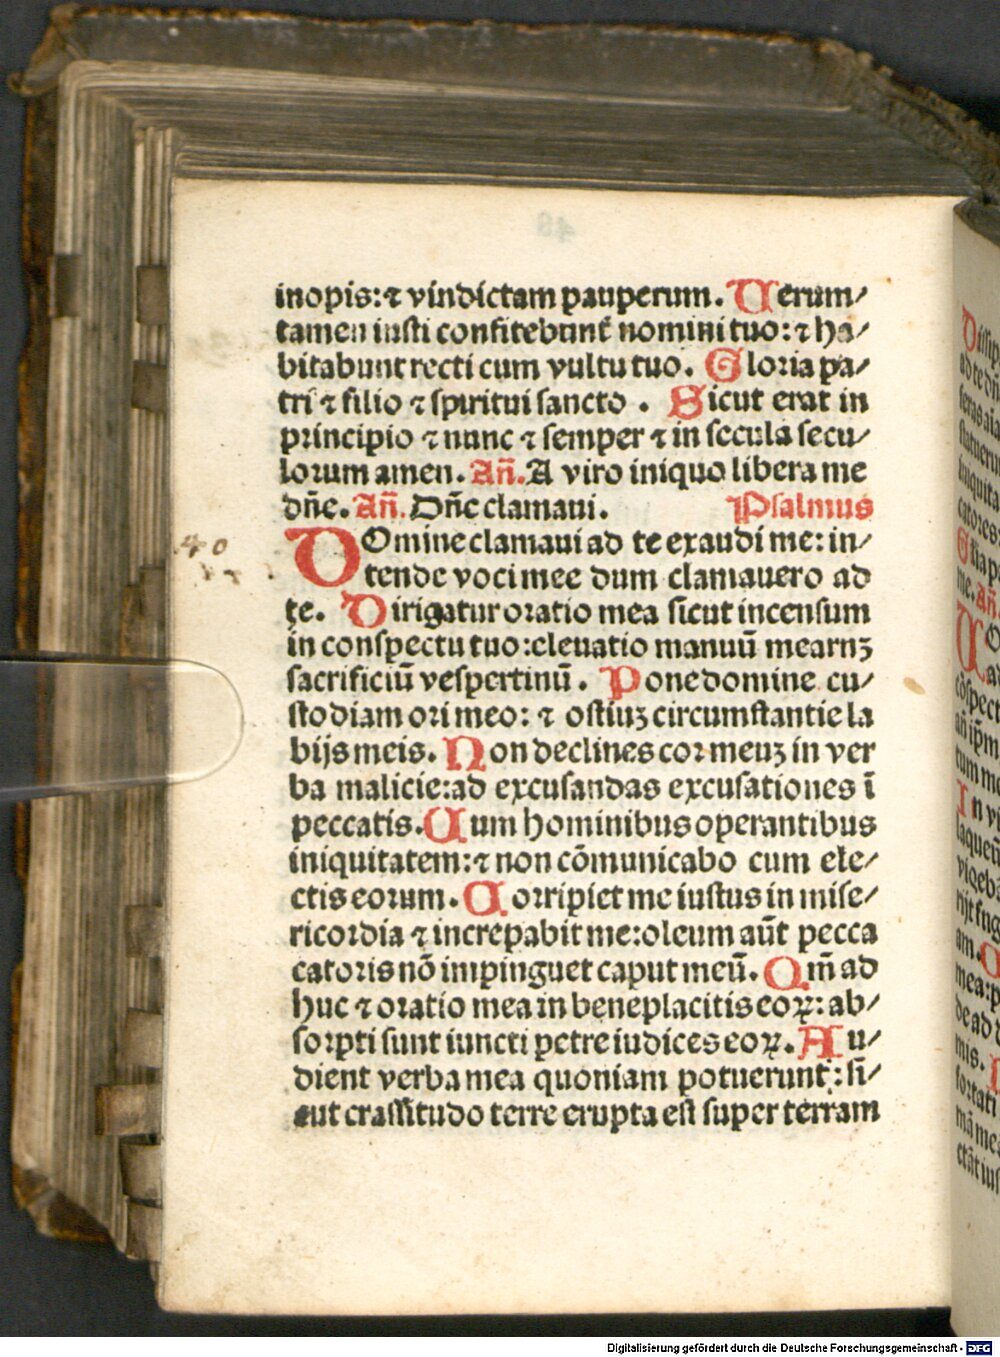 inopis:⁊ vindictam pauperum. Uerum/
tamen iusti confitebunt̄ nomini tuo:⁊ ha/
bitabunt recti cum vultu tuo. Gloria pa/
tri ⁊ filio ⁊ spiritui sancto . Sicut erat in
principio ⁊ nunc ⁊ semper ⁊ in secula secu/
lorum amen. Añ. A viro iniquo libera me
dñe. Añ. Dñe clamaui. Psalmus
DOmine clamaui ad te exaudi me: in/
tende voci mee dum clamauero ad
te. Dirigatur oratio mea sicut incensum
in conspectu tuo:eleuatio manuū mearuꝫ
sacrificiū vespertinū. Pone domine cu/
stodiam ori meo: ⁊ ostiuꝫ circumstantie la
bijs meis. Non declines cor meuꝫ in ver
ba malicie:ad excusandas excusationes ī
peccatis. Cum hominibus operantibus
iniquitatem:⁊ non cōmunicabo cum ele/
ctis eorum. Corripiet me iustus in mise/
ricordia ⁊ increpabit me:oleum aūt pecca
catoris nō impinguet caput meū. Qm̄ ad
huc ⁊ oratio mea in beneplacitis eoꝝ: ab/
sorpti sunt iuncti petre iudices eoꝝ. Au/
dient verba mea quoniam potuerunt: si/
cut crassitudo terre erupta est super terram
40
Digitalisierung gefördert durch die Deutsche Forschungsgemeinschaft - DFG